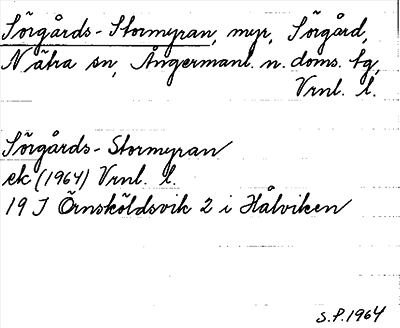 Sörgårds-Stormyran, myr, Sörgård,
Nätra sn, Ångermanl. n. doms. tg,
Vrnl. l.
Sörgårds-Stormyran
ek (1964) Vrnl. l.
19 J Örnsköldsvik 2 i Hålviken
S.P. 1964